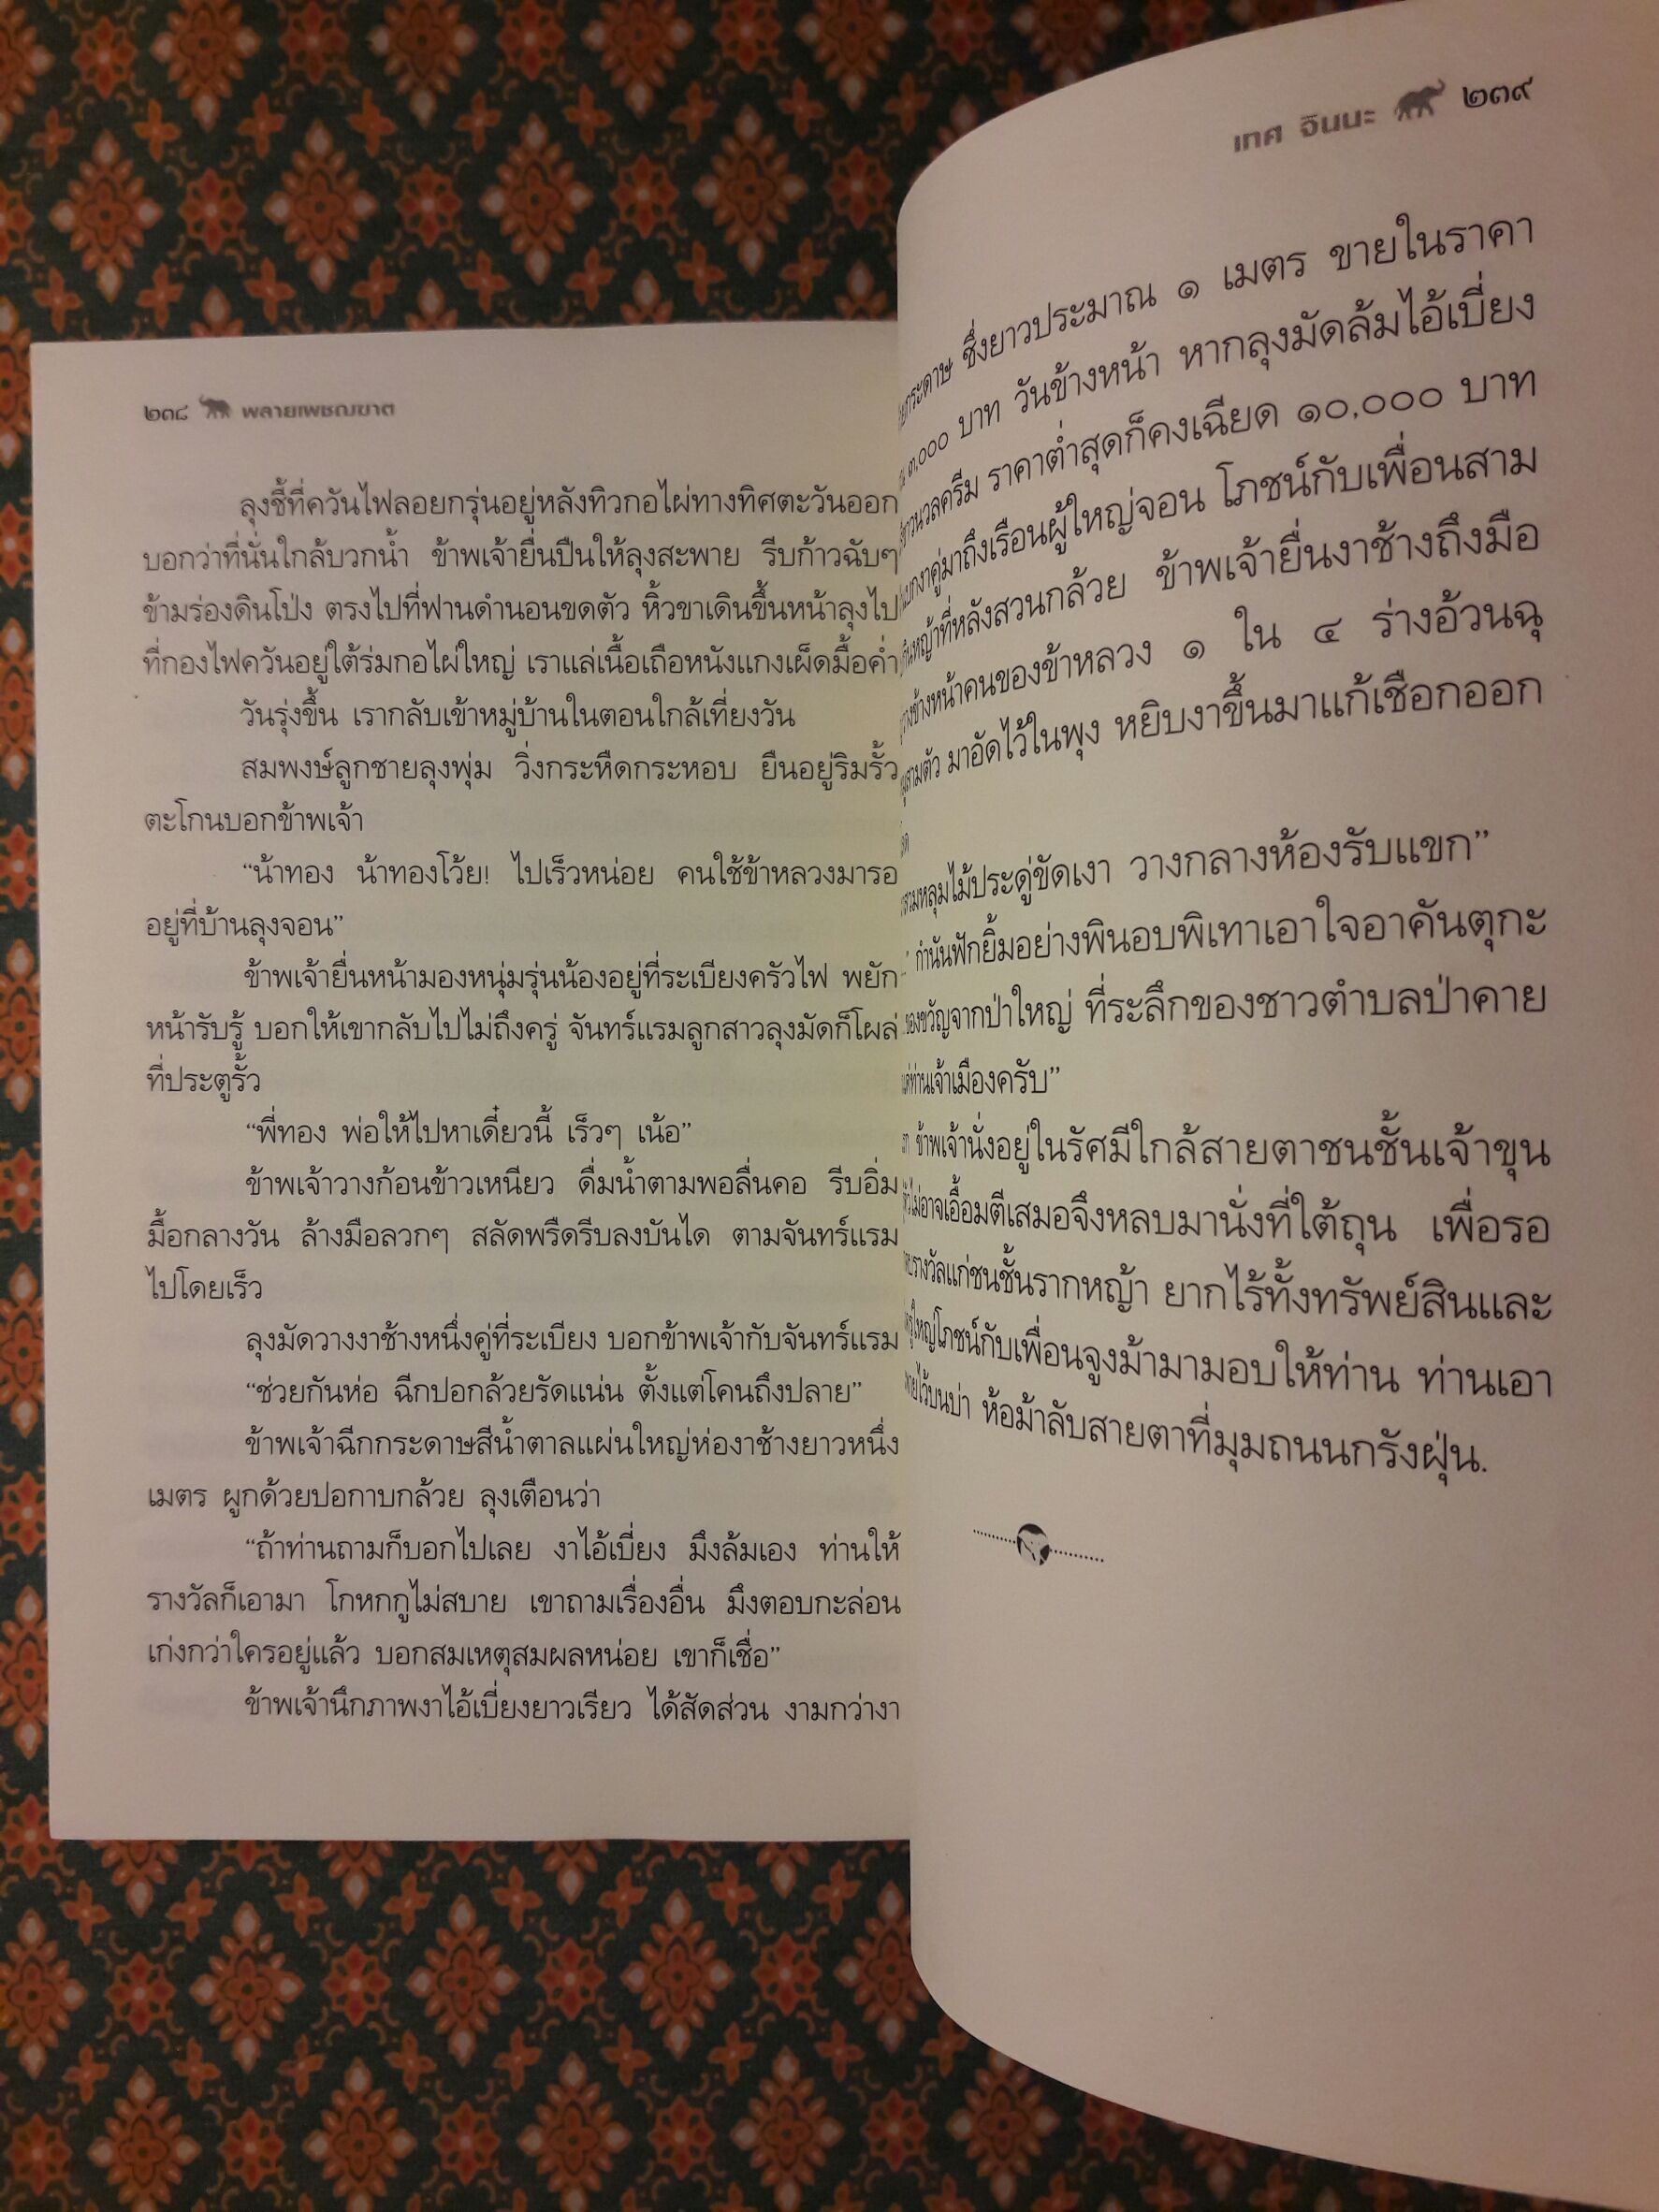 ๒๓๘ พลายเพชฌฆาต
ลุงชี้ที่ควันไฟลอยกรุ่นอยู่หลังทิวกอไผ่ทางทิศตะวันออก
บอกว่าที่นั่นใกล้บวกน้ำ ข้าพเจ้ายื่นปืนให้ลุงสะพาย รีบก้าวฉับๆ
ข้ามร่องดินโป่ง ตรงไปที่ฟานดำนอนขดตัว หิ้วขาเดินขึ้นหน้าลุงไป
ที่กองไฟควันอยู่ใต้ร่มกอไผ่ใหญ่ เราแล่เนื้อเถือหนังแกงเผ็ดมื้อค่ำ
วันรุ่งขึ้น เรากลับเข้าหมู่บ้านในตอนใกล้เที่ยงวัน
สมพงษ์ลูกชายลุงพุ่ม วิ่งกระหืดกระหอบ ยืนอยู่ริมรั้ว
ตะโกนบอกข้าพเจ้า
“น้าทอง น้าทองโว้ย! ไปเร็วหน่อย คนใช้ข้าหลวงมารอ
อยู่ที่บ้านลุงจอน”
ข้าพเจ้ายื่นหน้ามองหนุ่มรุ่นน้องอยู่ที่ระเบียงครัวไฟ พยัก
หน้ารับรู้ บอกให้เขากลับไปไม่ถึงครู่ จันทร์แรมลูกสาวลุงมัดก็โผล่
ที่ประตูรั้ว
“พี่ทอง พ่อให้ไปหาเดี๋ยวนี้ เร็วๆ เน้อ”
ข้าพเจ้าวางก้อนข้าวเหนียว ดื่มน้ำตามพอลื่นคอ รีบอิ่ม
มื้อกลางวัน ล้างมือลวกๆ สลัดพรืดรีบลงบันได ตามจันทร์แรม
ไปโดยเร็ว
ลุงมัดวางงาช้างหนึ่งคู่ที่ระเบียง บอกข้าพเจ้ากับจันทร์แรม
“ช่วยกันห่อ ฉีกปอกล้วยรัดแน่น ตั้งแต่โคนถึงปลาย”
ข้าพเจ้าฉีกกระดาษสีน้ำตาลแผ่นใหญ่ห่องาช้างยาวหนึ่ง
เมตร ผูกด้วยปอกาบกล้วย ลุงเตือนว่า
“ถ้าท่านถามก็บอกไปเลย งาไอ้เบี่ยง มึงล้มเอง ท่านให้
รางวัลก็เอามา โกหกกูไม่สบาย เขาถามเรื่องอื่น มึงตอบกะล่อน
เก่งกว่าใครอยู่แล้ว บอกสมเหตุสมผลหน่อย เขาก็เชื่อ”
ข้าพเจ้านึกภาพงาไอ้เบี่ยงยาวเรียว ได้สัดส่วน งามกว่างา
เทศ จินนะ ๒๓๙
ซึ่งยาวประมาณ ๑ เมตร ขายในราคา
๓,๐๐๐ บาท วันข้างหน้า หากลุงมัดล้มไอ้เบี่ยง
ราคาต่ำสุดก็คงเฉียด ๑๐,๐๐๐ บาท
งาคู่มาถึงเรือนผู้ใหญ่จอน โภชน์กับเพื่อนสาม
หญ้าที่หลังสวนกล้วย ข้าพเจ้ายื่นงาช้างถึงมือ
ข้างหน้าคนของข้าหลวง ๑ ใน ๔ ร่างอ้วนฉุ
สามตัว มาอัดไว้ในพุง หยิบงาขึ้นมาแก้เชือกออก
หลุมไม้ประดู่ขัดเงา วางกลางห้องรับแขก”
กำนันฟักยิ้มอย่างพินอบพิเทาเอาใจอาคันตุกะ
ของขวัญจากป่าใหญ่ ที่ระลึกของชาวตำบลป่าคาย
ท่านเจ้าเมืองครับ”
ข้าพเจ้านั่งอยู่ในรัศมีใกล้สายตาชนชั้นเจ้าขุน
ไม่อาจเอื้อมตีเสมอจึงหลบมานั่งที่ใต้ถุน เพื่อรอ
รางวัลแก่ชนชั้นรากหญ้า ยากไร้ทั้งทรัพย์สินและ
โภชน์กับเพื่อนจูงม้ามามอบให้ท่าน ท่านเอา
ไว้บนบ่า ห้อม้าลับสายตาที่มุมถนนกรังฝุ่น.